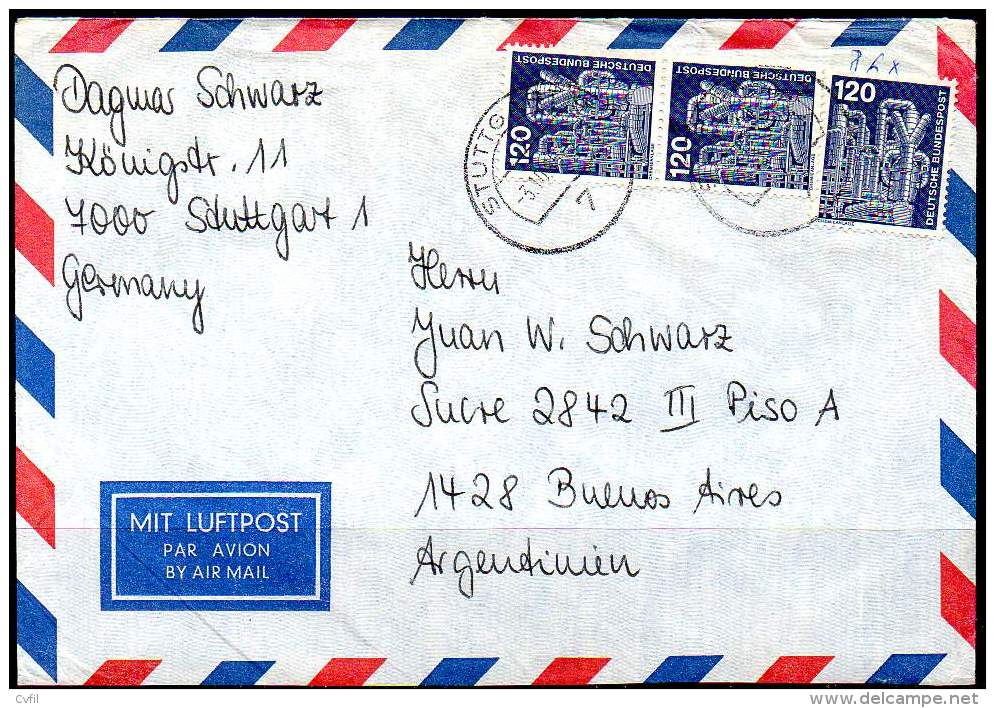 Dagmar Schwarz
Königstr. 11
7000 Stuttgart 1
Germany
120
DEUTSCHE BUNDESPOST
120
DEUTSCHE BUNDESPOST
120
DEUTSCHE BUNDESPOST
STUTTG
7
Herrn
Juan W. Schwarz
Sucre 2842 III Piso A
1428 Buenos Aires
Argentinien
MIT LUFTPOST
PAR AVION
BY AIR MAIL
Cvfil
www.delcampe.net